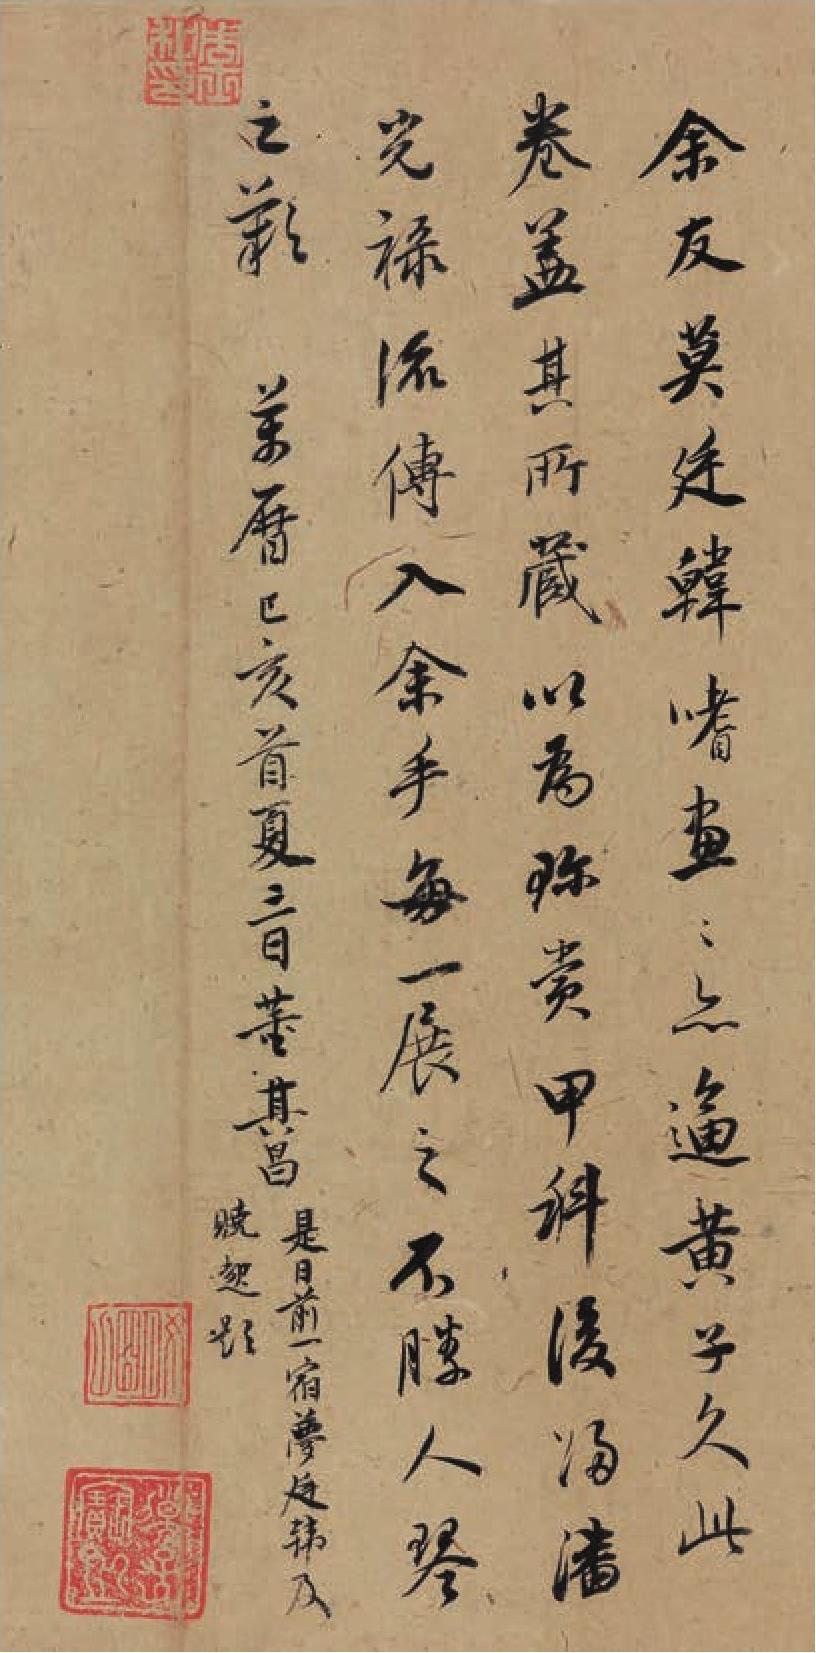 余友莫廷韓嗜畫〻亦逼黃子久此
卷盖其所藏以為珎賞甲科後歸潘
光祿流傳入余手每一展之不勝人琴
之歎 萬曆己亥首夏三日董其昌
是日前一宿夢廷韓及
曉起題